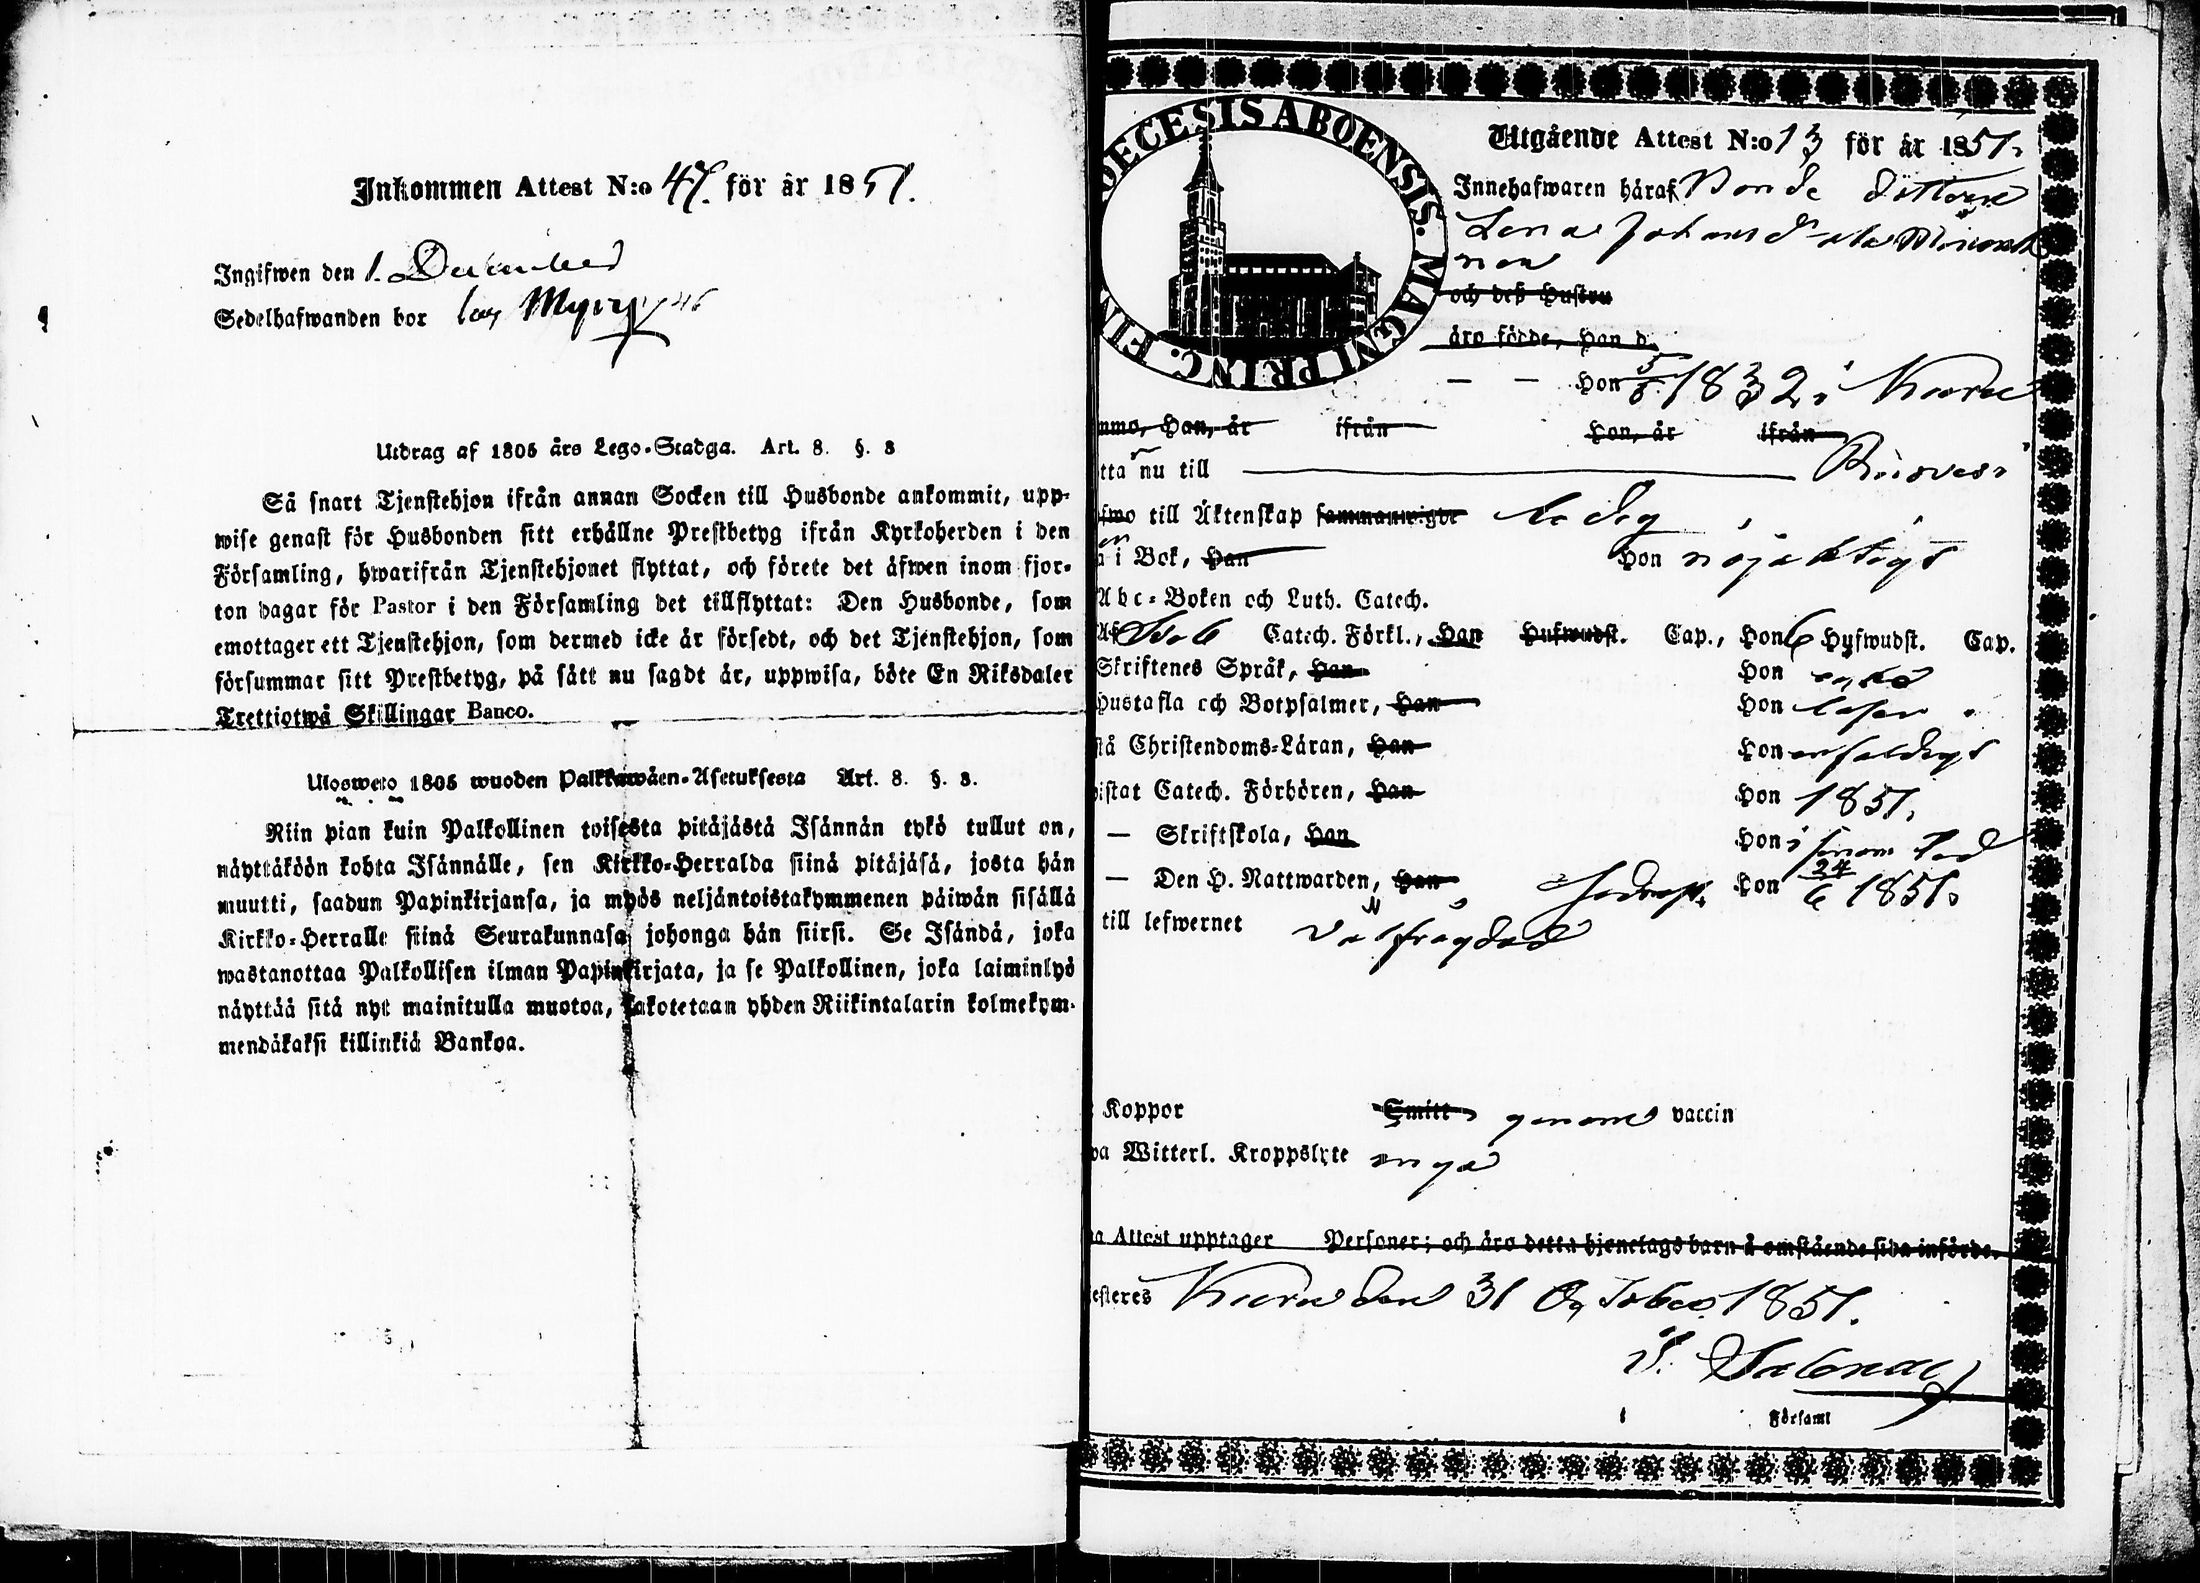 Inkommen Attest N:o 47. för år 1851.
Ingifwen den 1. December
Sedelhafwanden bor
Utdrag af 1805 års Lego-Stadga. Art. 8. §. 3
Så snart Tjenstehjon ifrån annan Socken till Husbonde ankommit, upp-
wise genast för Husbonden sitt erhållne Prestbetyg ifrån Kyrkoherden i den
Församling, hwarifrån Tjenstehjonet flyttat, och förete det äfwen inom fjor-
ton dagar för Pastor i den Församling det tillflyttat: Den Husbonde, som
emottager ett Tjenstehjon, som dermed icke är försedt, och det Tjenstehjon, som
försummar sitt Prestbetyg, på sätt nu sagdt är, uppwisa, böte En Riksdaler
Trettiotwå Skillingar Banco.
Ulosweto 1805 wuoden Palkkawäen-Asetuksesta Art. 8. §. 3.
Niin pian kuin Palkollinen toisesta pitäjästä Isännän tykö tullut on,
näyttäköön kohta Isännälle, sen Kirkko-Herralda siinä pitäjäsä, josta hän
muutti, saadun Papinkirjansa, ja myös neljäntoistakymmenen päiwän sisällä
Kirkko-Herralle siinä Seurakunnasa johonga hän siirsi. Se Isändä, joka
wastanottaa Palkollisen ilman Papinkirjata, ja se Palkollinen, joka laiminlyö
näyttää sitä nyt mainitulla muotoa, sakotetaan yhden Riikintalarin kolmekym-
mendäkaksi killinkiä Bankoa.
OECESIS ABOENSIS. MAGNI PRINC. FIN
Utgående Attest N:o 13 för år 1851.
Innehafwaren häraf Bonde dottren
Lena Johansd:r
och deß Hustru
äro födde, Han d.
— — Hon 5/8 1832 i Kuru
mmo, Han, är ifrån Hon, är ifrån
tta nu till Ruovesi
fwo till Äktenskap sammanwigde ledig
i Bok, Han Hon nöjaktigt
Abc-Boken och Luth. Catech.
Af Sveb Catech. Förkl., Han Hufwudst. Cap., Hon 6 Hufwudst. Cap.
Skriftenes Språk, Han Hon
Hustafla och Botpsalmer, Han Hon läser
stå Christendoms-Läran, Han Hon enfaldigt
istat Catech. Förhören, Han Hon 1851.
— Skriftskola, Han Hon i sinom tid
— Den H. Nattwarden, Han Hon 24/6 1851.
till lefwernet välfrägdad
Koppor Smitt genom vaccin
pa Witterl. Kroppslyte inga
na Attest upptager Personer; och äro detta hjonelags barn å omstående sida införde.
testeres Kuru den 31 October 1851.
Församl